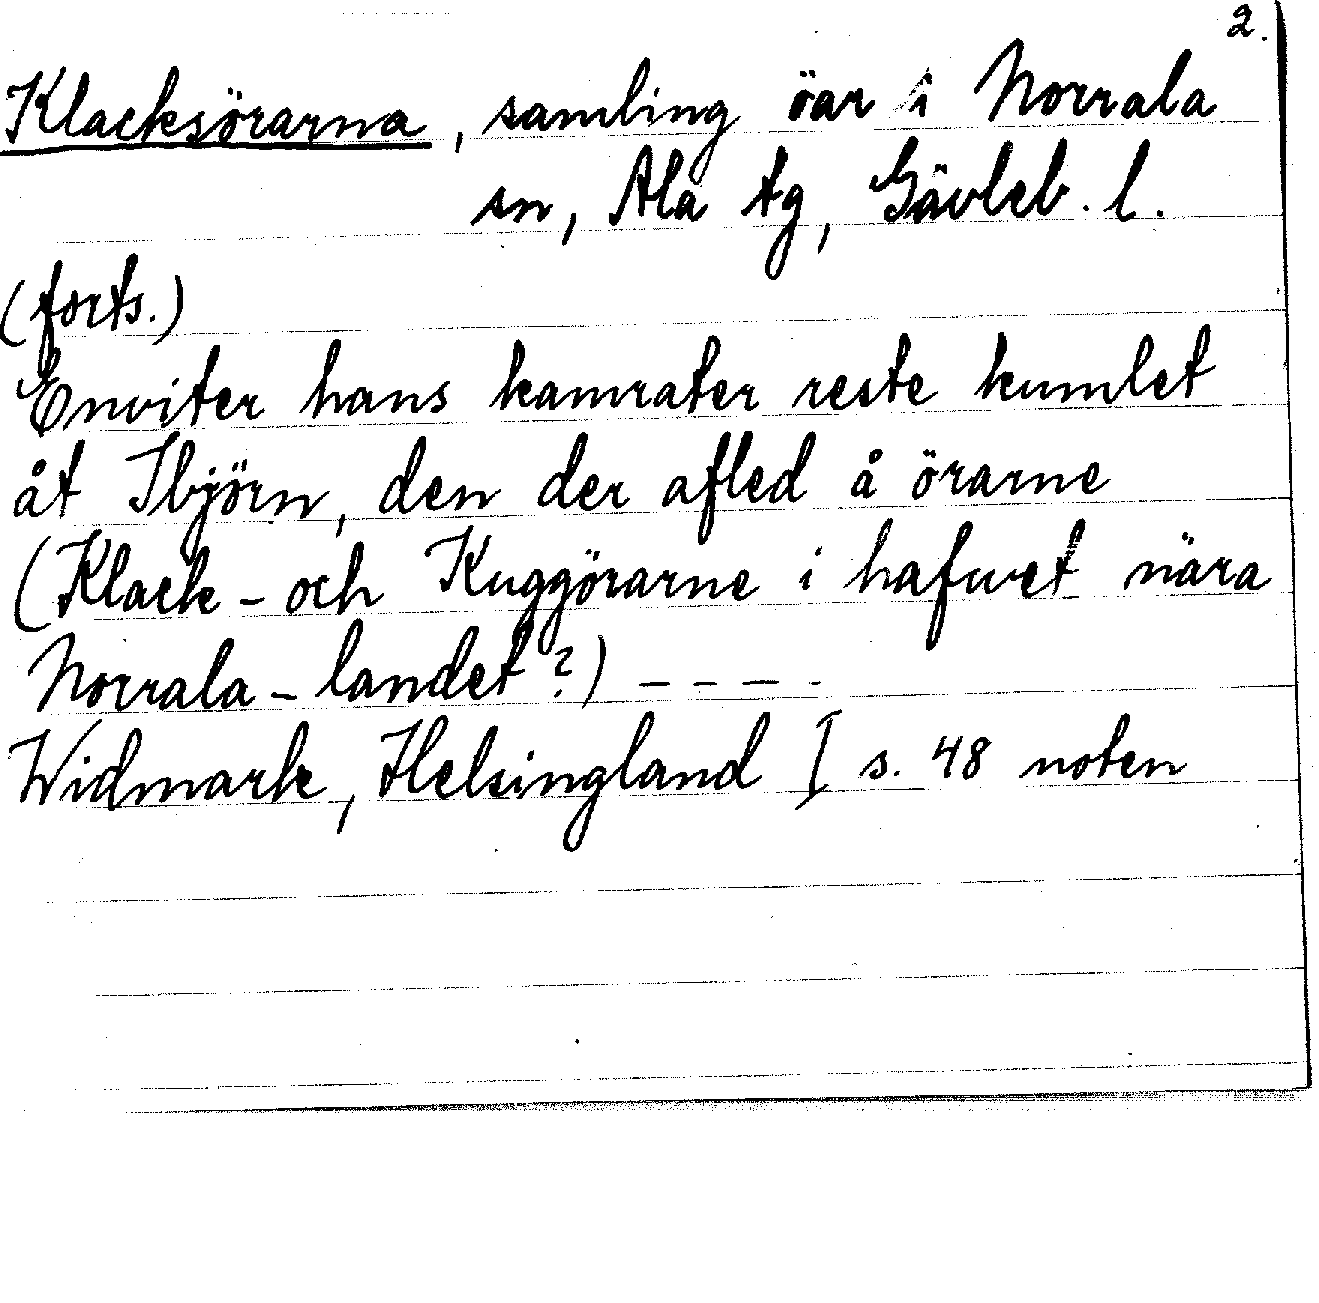 2.
Klacksörarna, samling öar i Norrala
sn, Ala tg, Gävleb. l.
(forts.)
Enviter hans kamrater reste kumlet
åt Ibjörn, den der afled å örarne
(Klack- och Kuggörarne i hafwet nära
Norrala-landet?) – – – -
Widmark, Helsingland I s. 48 noten